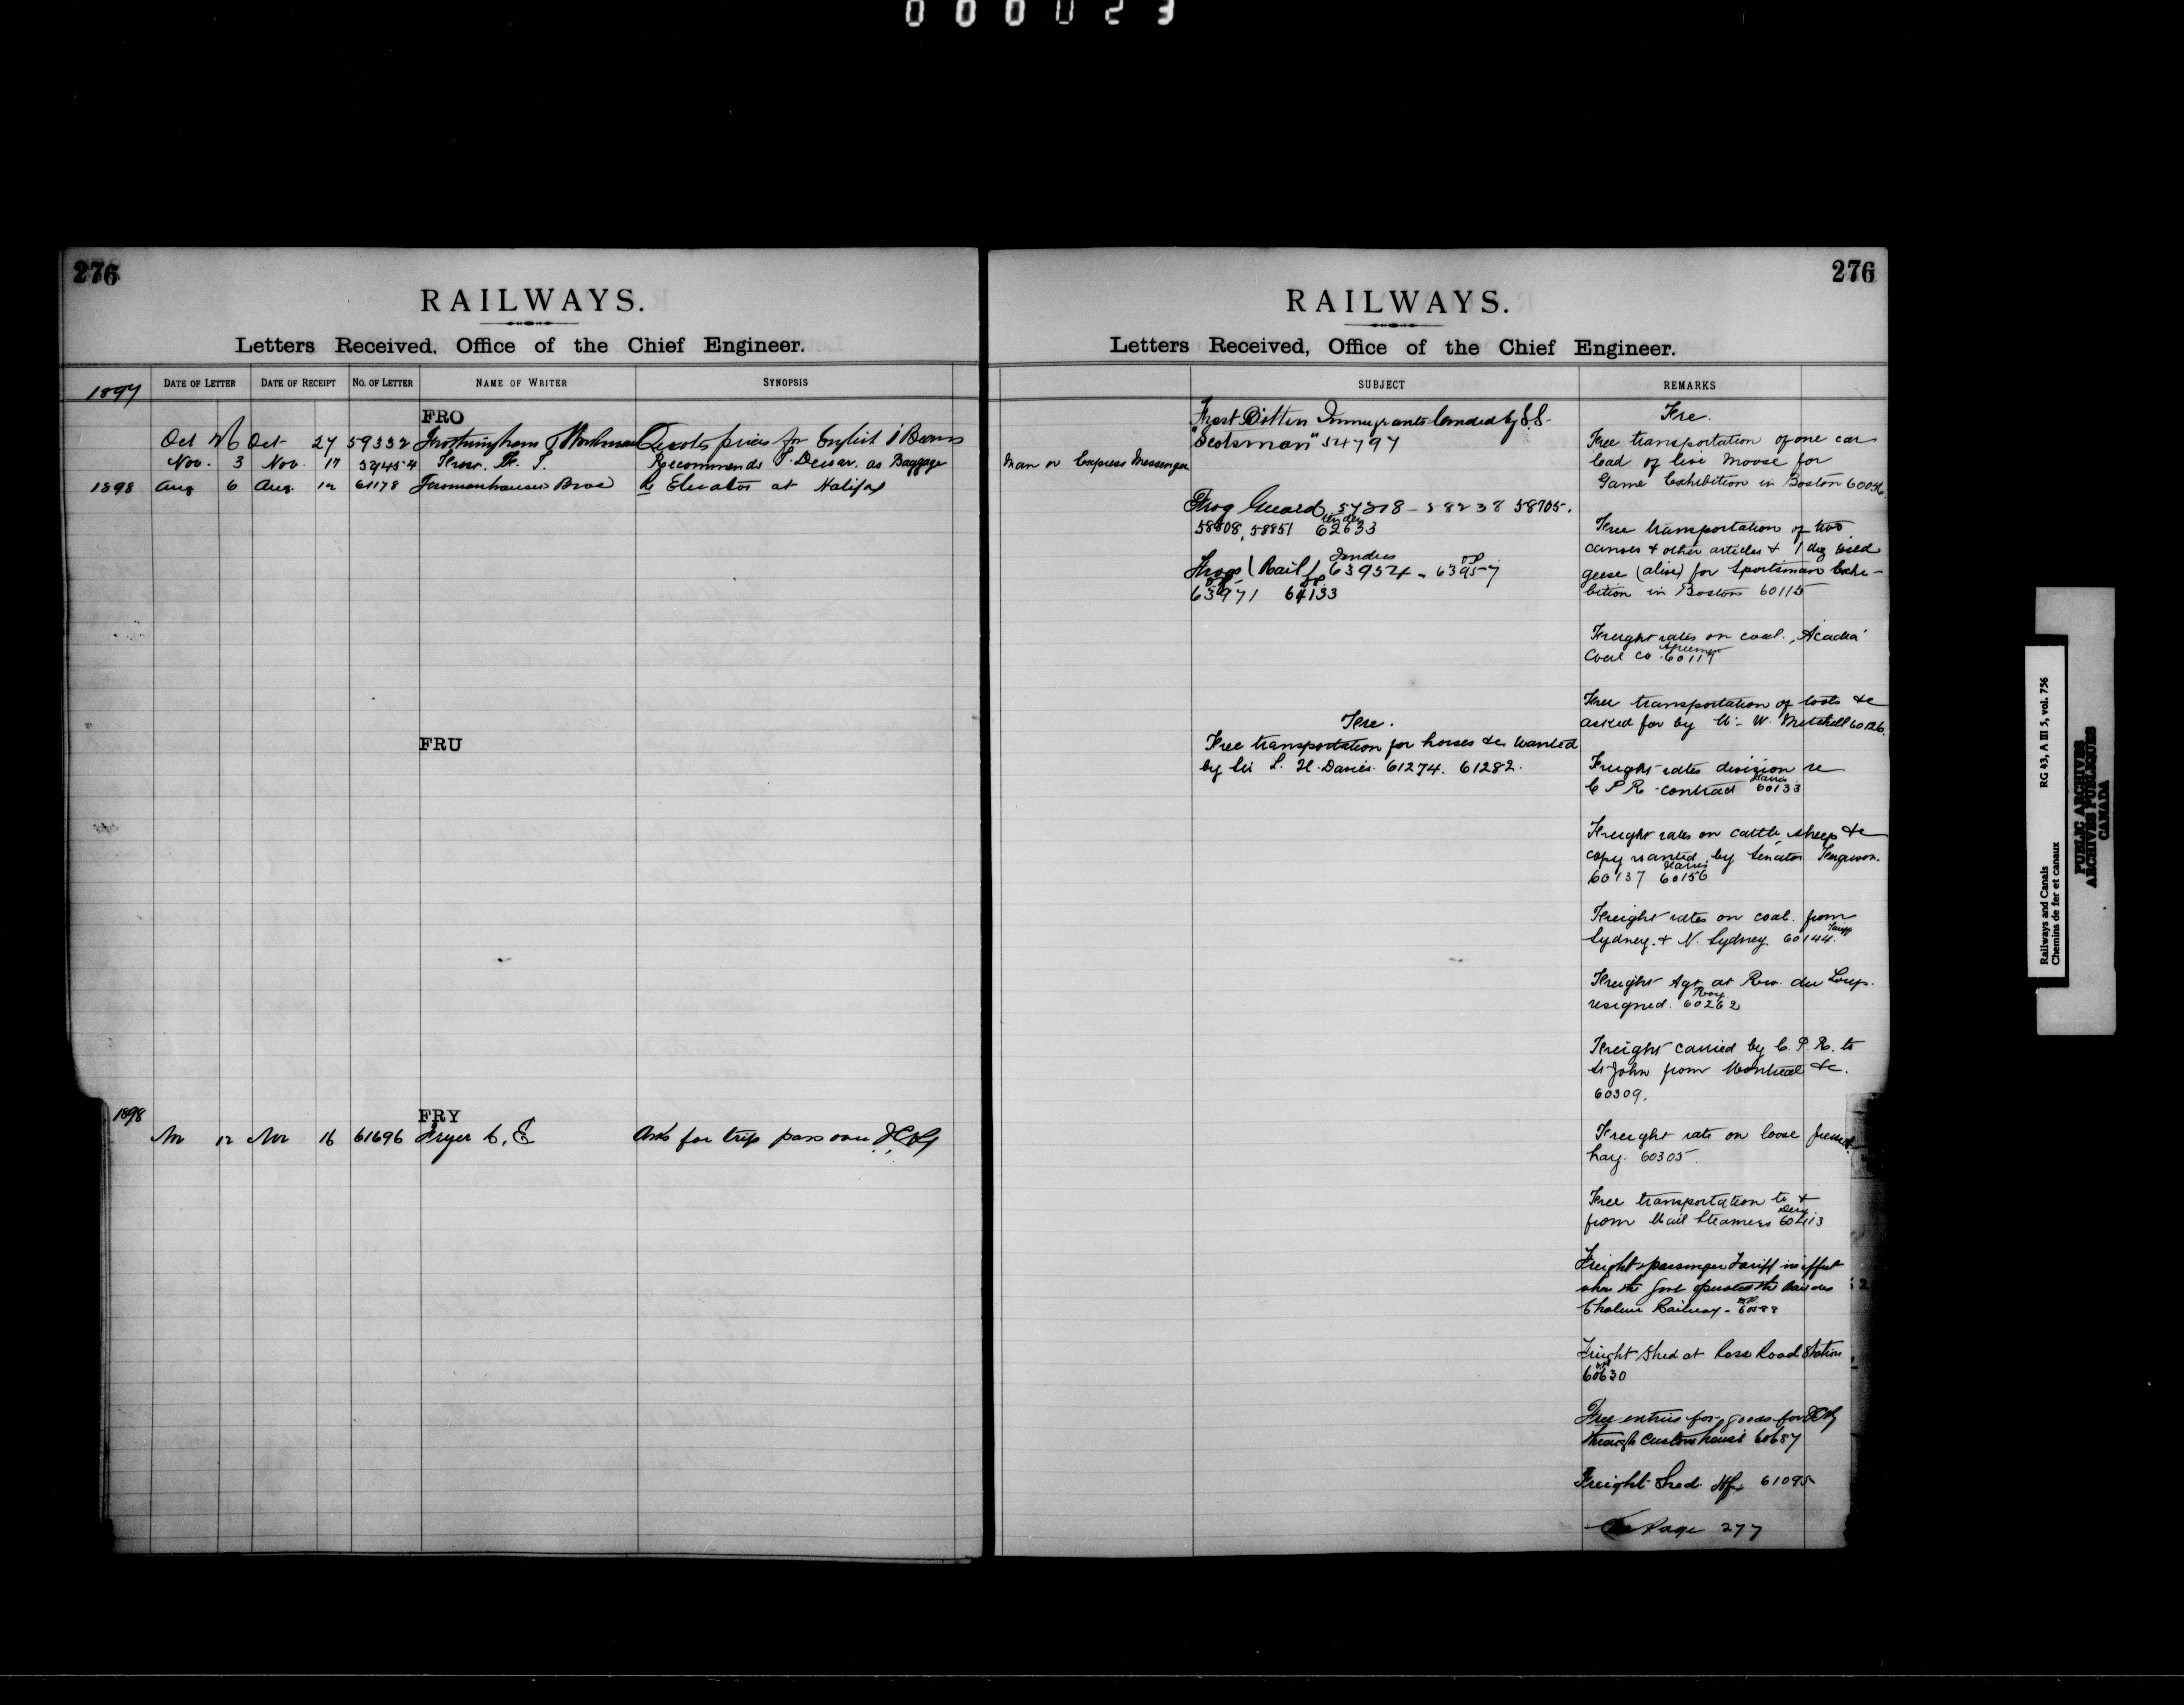 000023
276
RAILWAYS.
Letters Received, Office of the Chief Engineer.
1897
DATE OF LETTER DATE OF RECEIPT No. OF LETTER NAME OF WRITER SYNOPSIS
FRO
Oct 26 Oct 27 59332 Frothingham & Workman Quotes prices for English I Beams
Nov. 3 Nov. 17 59454 F. Recommends as Baggage
1898 Aug 6 Aug. 12 61178 Bros re Elevator at Halifax
FRU
1898
FRY
Nov 12 Nov 16 61696 Fryer C. E Asks for trip pass over ICRy
276
RAILWAYS.
Letters Received, Office of the Chief Engineer.
SUBJECT REMARKS
Man or Express Messenger
Frost Bitten Immigrants landed by S.S.
"Scotsman" 54797
Frog Guard 57318 - 58238 58705.
58808, 58851 Tender 62633
Frogs (Rail) Tenders 63954 - 63957
63971 64133
Fre.
Free transportation for horses &c wanted
by Sir L. H. Davies. 61274. 61282.
Fre.
Free transportation of one car
load of live Moose for
Game Exhibition in Boston 60056
Free transportation of two
canoes & other articles & 1 dog wild
geese (alive) for Sportsman Exhi-
bition in Boston 60115
Freight rates on coal. Acadia
Coal Co. Agreement 60117
Free transportation of tools &c
asked for by W. Mitchell 60126.
Freight rates division re
C P R contract Harris 60133
Freight rates on cattle, sheep &c
copy wanted by Senator Ferguson.
60137 Harris 60156
Freight rates on coal from
Sydney & N. Sydney. 60144. Tariff
Freight Agt at Riv. du Loup.
resigned. Roy 60262
Freight carried by C. P. R. to
St John from Montreal &c.
60309.
Freight rate on loose pressed
hay. 60305.
Free transportation to &
from Mail Steamers 60413
Freight & passenger Tariff in effect
when the Govt operated the Baie des
Chaleur Railway - 60588
Freight Shed at Ross Road Station
60630
Free entries for goods for ICRy
through Customs house 60687
Freight Shed Hfx 61095
Page 277
Railways and Canals RG 43, A III 5, vol. 756
Chemins de fer et canaux
PUBLIC ARCHIVES
ARCHIVES PUBLIQUES
CANADA